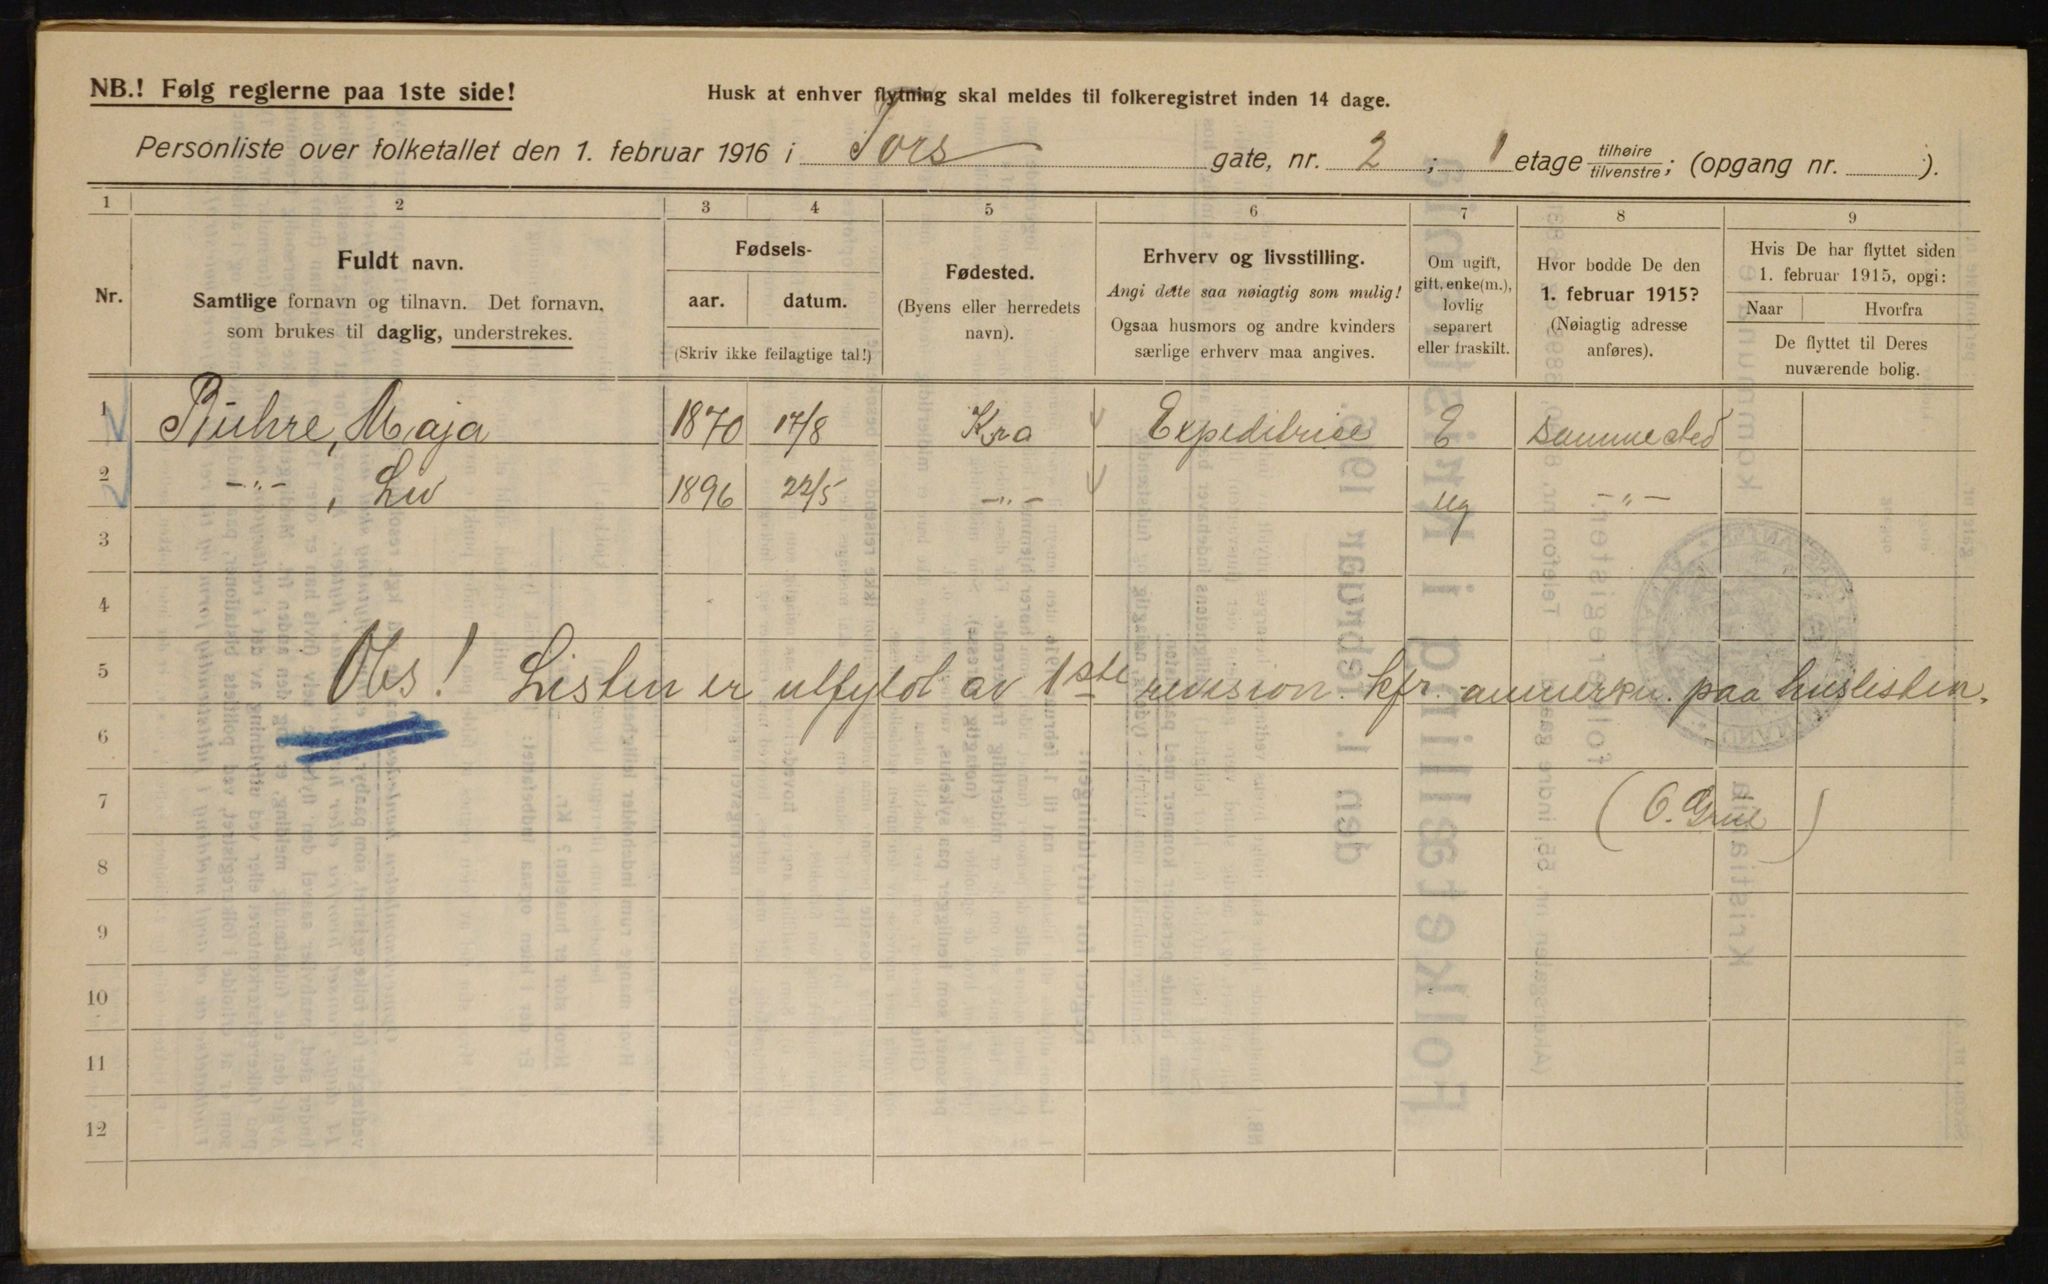 NB.! Følg reglerne paa 1ste side!
Husk at enhver flytning skal meldes til folkeregistret inden 14 dage.
Personliste over folketallet den 1. februar 1916 i Tors gate, nr. 2 ; 1 etage tilhøire/tilvenstre; (opgang nr. ).
1 2 3 4 5 6 7 8 9
Nr.
Fuldt navn.
Samtlige fornavn og tilnavn. Det fornavn,
som brukes til daglig, understrekes.
Fødsels-
aar. datum.
(Skriv ikke feilagtige tal!)
Fødested.
(Byens eller herredets
navn).
Erhverv og livsstilling.
Angi dette saa nøiagtig som mulig!
Ogsaa husmors og andre kvinders
særlige erhverv maa angives.
Om ugift,
gift, enke(m.),
lovlig
separert
eller fraskilt.
Hvor bodde De den
1. februar 1915?
(Nøiagtig adresse
anføres).
Hvis De har flyttet siden
1. februar 1915, opgi:
Naar Hvorfra
De flyttet til Deres
nuværende bolig.
1 Maja 1870 17/8 Kra Expeditrice E samme sted
2 -"- , 1896 22/5 -"- ug -"-
3
4
5 Obs! Listen er utfyldt av 1ste revision. kfr. anmerkn. paa huslisten.
6
7 (O. )
8
9
10
11
12